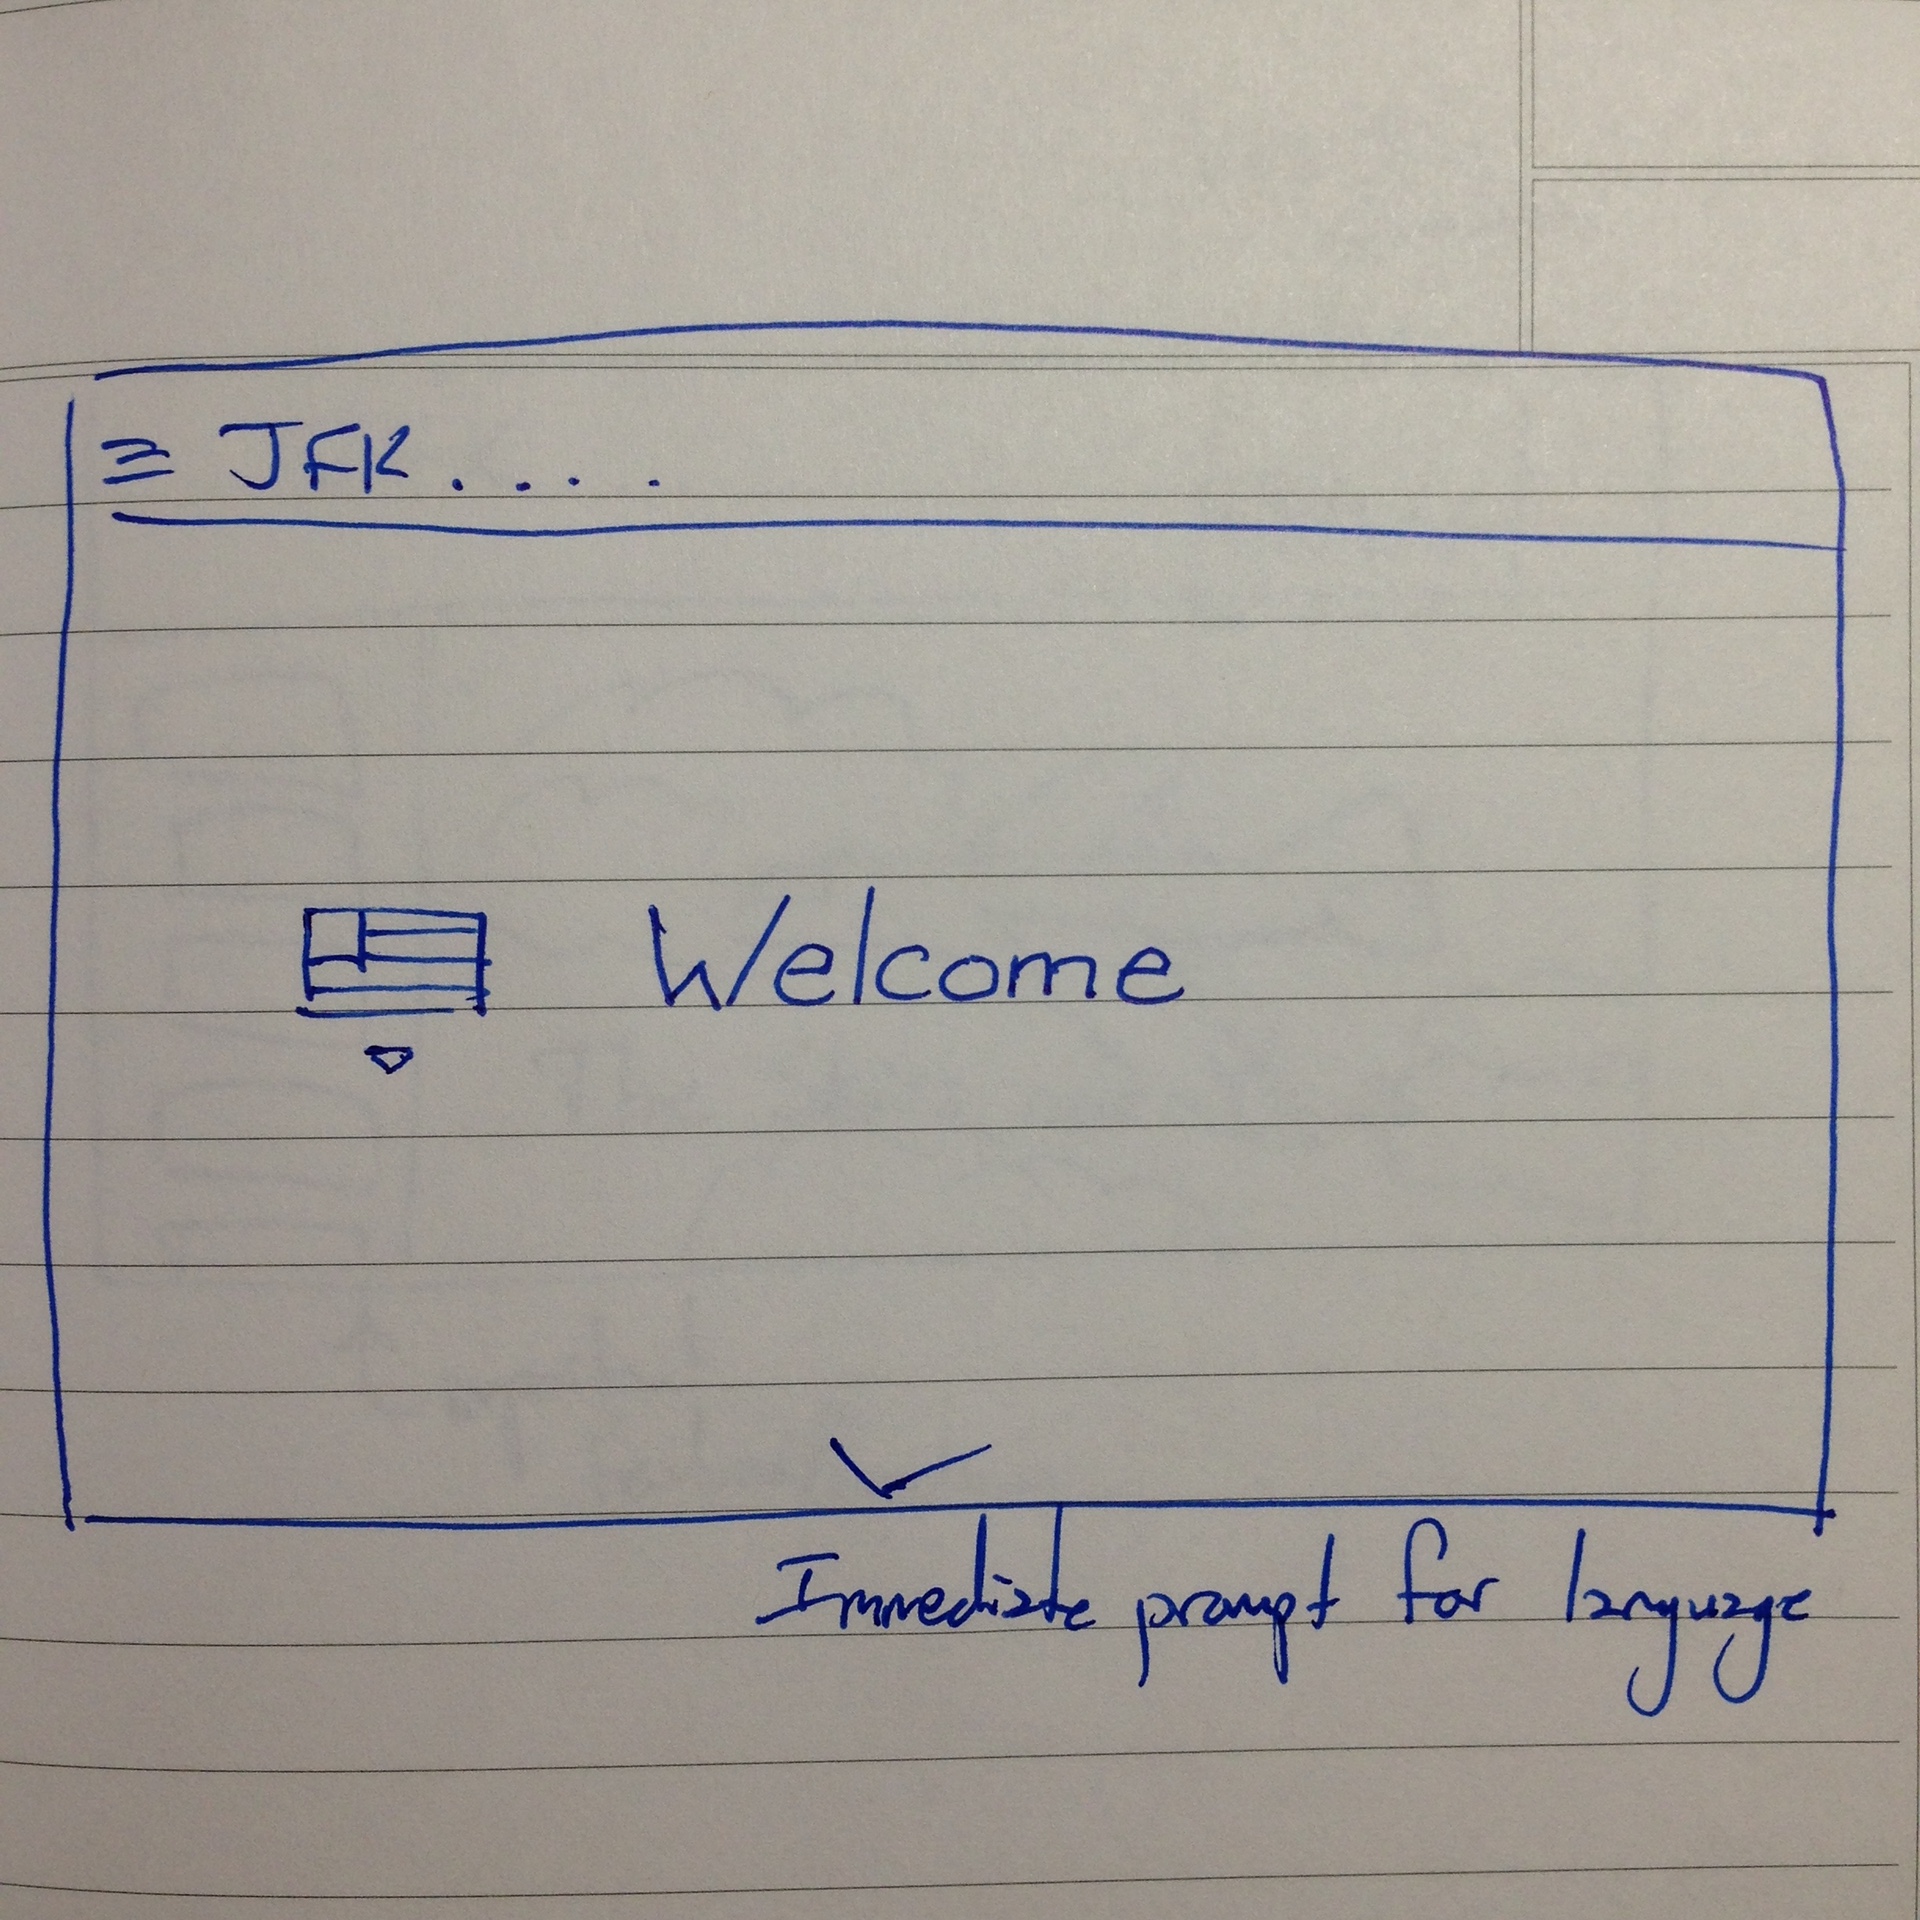 JFK....
Welcome
Immediate prompt for language